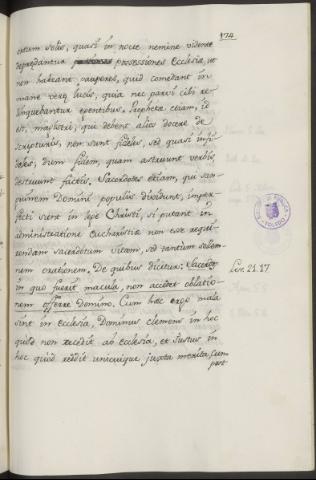 174
ortum solis, quasi in nocte nemine vidente
depredantur possessiones Ecclesiæ, ut
non habeant pauperes, quid comedant in
mane veræ lucis, quia nec parvi cibi re-
linquebantur egentibus. Prophetæ etiam, id
est, magistri, qui debent alios docere de
scripturis non sunt fideles, sed quasi infi-
deles, dum fidem, quam astruunt verbis,
destruunt factis. Sacerdotes etiam, qui san-
guinem Domini populis dividunt, imper-
fecti sunt in lege Christi, si putant in
administratione eucharistiæ non esse requi-
rendam sacerdotum vitam, sed tantum solem-
nem orationem. De quibus dicitur: Sacerdos
in quo fuerit macula, non accedet oblatio-
nem offerre Domino. Cum hæc ergo mala
sint in ecclesia, Dominus clemens in hoc
quod non recedit ab ecclesia, et Iustus in
hoc quod reddit unicuique juxta merita, cum
post
Lev. 21. 17
TOLEDO